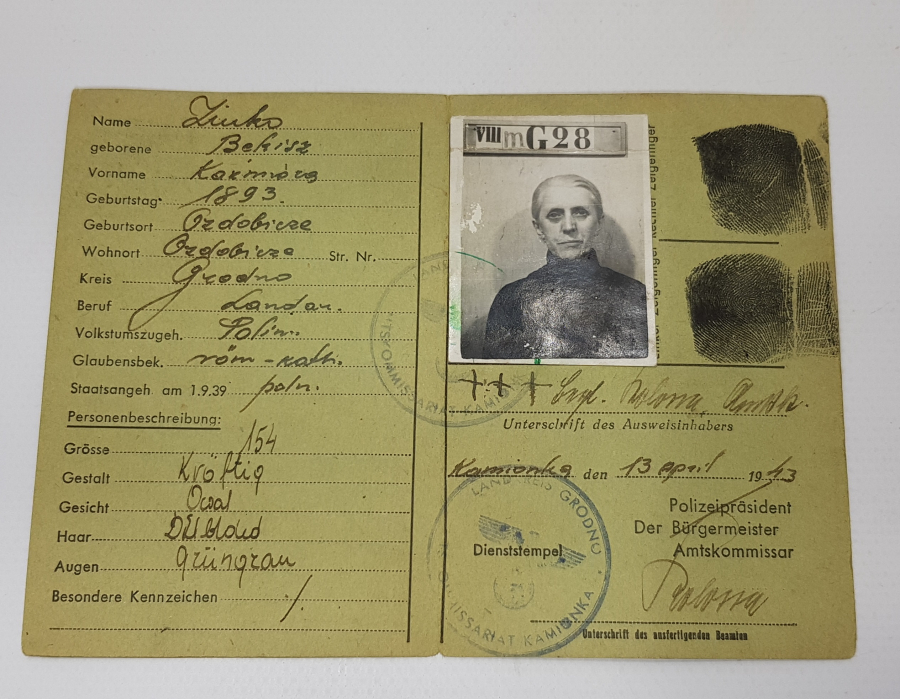 Name Zinko
geborene Bekisz
Vorname
Geburtstag 1893.
Geburtsort Ozdobicze
Wohnort Ozdobicze Str. Nr.
Kreis Grodno
Beruf Landar.
Volkstumszugeh. Polin.
Glaubensbek. röm-kath.
Staatsangeh am 1.9.39 poln.
Personenbeschreibung:
Grösse 154
Gestalt Kräftig
Gesicht Oval
Haar
Augen Grüngrau
Besondere Kennzeichen /.
VIII m G28
+++ Kolona, Amtsk.
Unterschrift des Ausweisinhabers
Kamionka den 13 april 1943
Polizeipräsident
Der Bürgermeister
Amtskommissar
LANDKREIS GRODNO
KOMMISSARIAT KAMIONKA
Dienststempel
Unterschrift des ausfertigenden Beamten